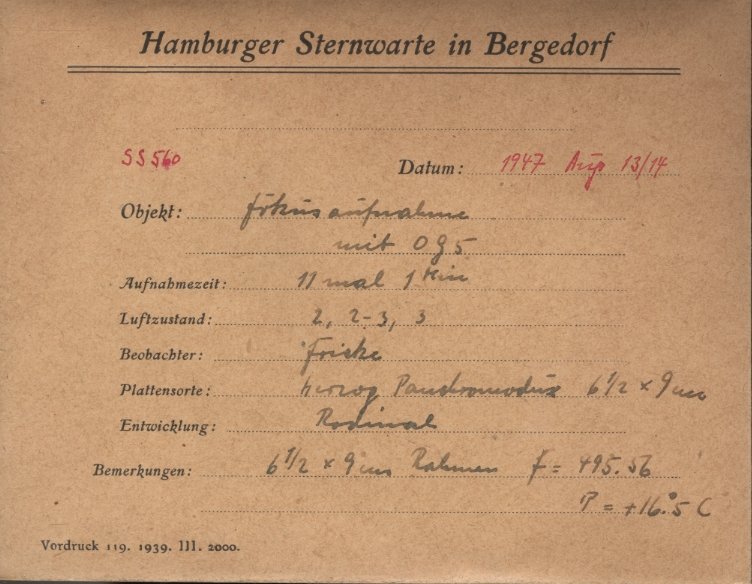 Hamburger Sternwarte in Bergedorf
SS560 Datum: 1947 Aug 13/14
Objekt: Fokusaufnahme
mit OG5
Aufnahmezeit: 11 mal 1 Min
Luftzustand: 2, 2-3, 3
Beobachter: Fricke
Plattensorte: Herzog 6 1/2 × 9 cm
Entwicklung: Rodinal
Bemerkungen: 6 1/2 × 9 cm Rahmen f = 495.56
T = +16.°5 C
Vordruck 119. 1939. III. 2000.